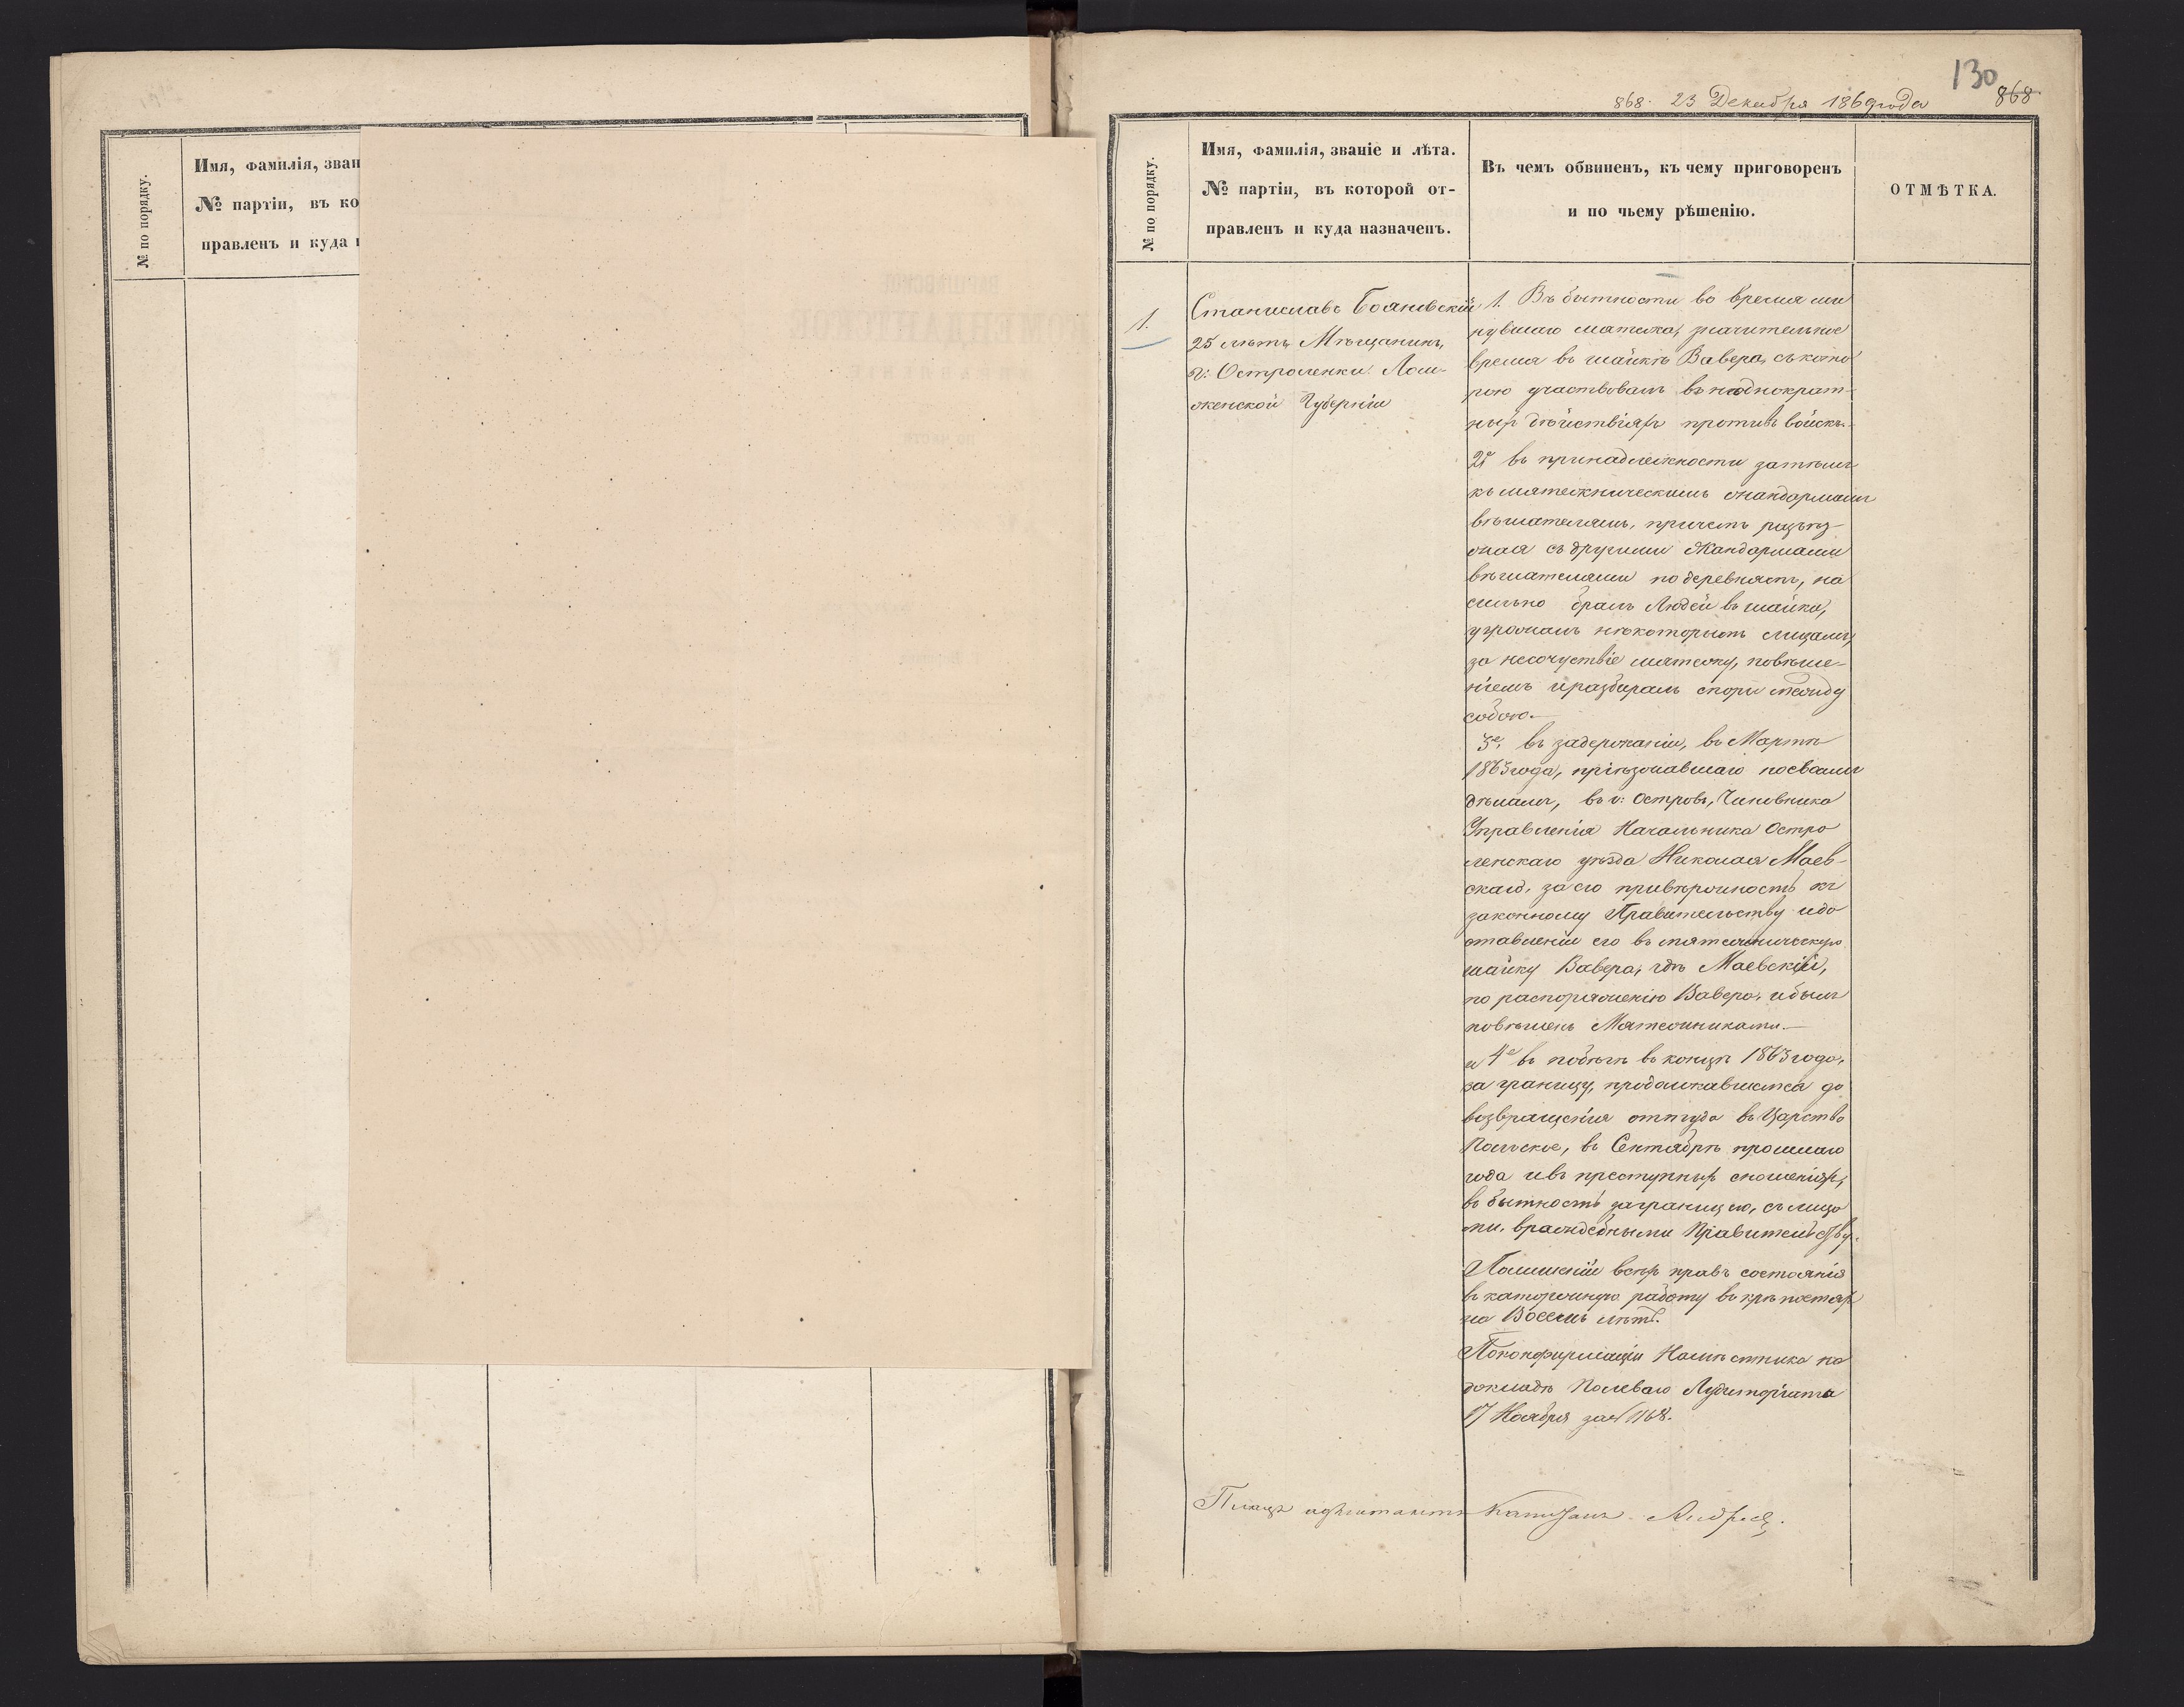 № по порядку.
Имя, фамилія, зван
№ партіи, въ ко
правленъ и куда
130
868. 23 Декабря 1869 года 868
№ по порядку.
Имя, фамилія, званіе и лѣта.
№ партіи, въ которой от-
правленъ и куда назначенъ.
Въ чемъ обвиненъ, къ чему приговоренъ
и по чьему рѣшенію.
ОТМѢТКА.
1.
Станиславъ Бояновскій
25 лѣтъ Мѣщанинъ,
г: Остроленки Лом-
женской Губерніи
1. Въ бытности во время ми
нувшаго мятежа, значительное
время въ шайкѣ Вавера, съ кото
рою участвовалъ въ неоднократ-
ныхъ дѣйствіяхъ противъ войскъ.
2е въ принадлежности затѣмъ
къ мятежническимъ жандармамъ
вѣшателямъ, причемъ разъѣз-
жая съ другими Жандармами
вѣшателями по деревнямъ, на
сильно бралъ Людей въ шайка,
угрожалъ нѣкоторымъ лицамъ,
за несочуствіе мятежу, повѣше-
ніемъ и разбиралъ споры между
собою.—
3е, въ задержаніи, въ Мартѣ
1863 года, пріѣзжавшаго по своимъ
дѣламъ, въ г: Островъ, Чиновника
Управленія Начальника Остро
ленскаго уѣзда Николая Маев-
скаго, за его приверженность къ
законному Правительству и до
ставленіи его въ мятежническую
шайку Вавера, гдѣ Маевскій,
по распоряженію Вавера, и былъ
повѣшенъ Мятежниками.—
и 4е въ побѣгѣ въ концѣ 1863 года,
за границу, продолжавшемся до
возвращенія оттуда въ Царство
Польское, въ Сентябрѣ прошлаго
года и въ преступныхъ сношеніяхъ,
въ бытность заграницею, съ лица
ми, враждебными Правительству.
Лишеніи всѣхъ правъ состоянія
въ каторжную работу въ крѣпостяхъ
на Восемь лѣтъ.
По конфирмаціи Намѣстника на
докладѣ Полеваго Аудиторіата
17 Ноября за № 1168.
Плацъ адъютантъ Капитанъ